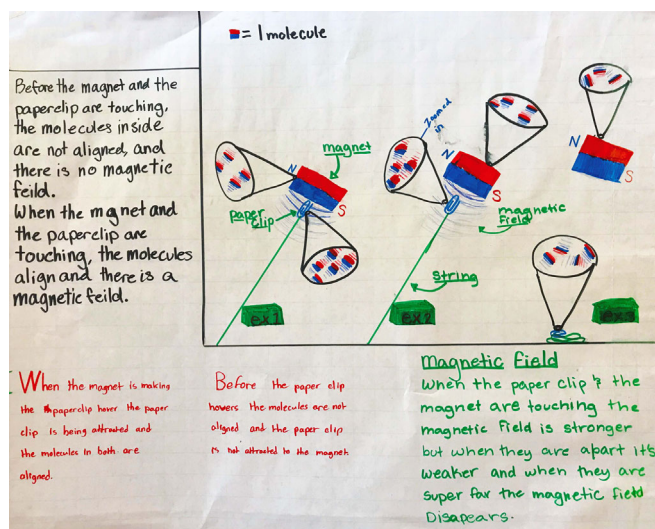 = 1 molecule
Before the magnet and the
paperclip are touching,
the molecules inside
are not aligned, and
there is no magnetic
feild.
When the magnet and
the paperclip are
touching, the molecules
align and there is a
magnetic feild.
N
magnet
S
paper
clip
ex 1
Zoomed
in
N
S
magnetic
field
string
ex 2
N
S
ex 3
When the magnet is making
the paperclip hover the paper
clip is being attracted and
the molecules in both are
aligned.
Before the paper clip
hovers the molecules are not
aligned and the paper clip
is not attracted to the magnet
Magnetic Field
When the paper clip & the
magnet are touching the
magnetic field is stronger
but when they are apart it's
weaker and when they are
super far the magnetic field
Disapears.